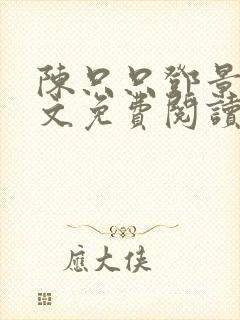 陳只只鄧景
文免費閱讀
應大俠